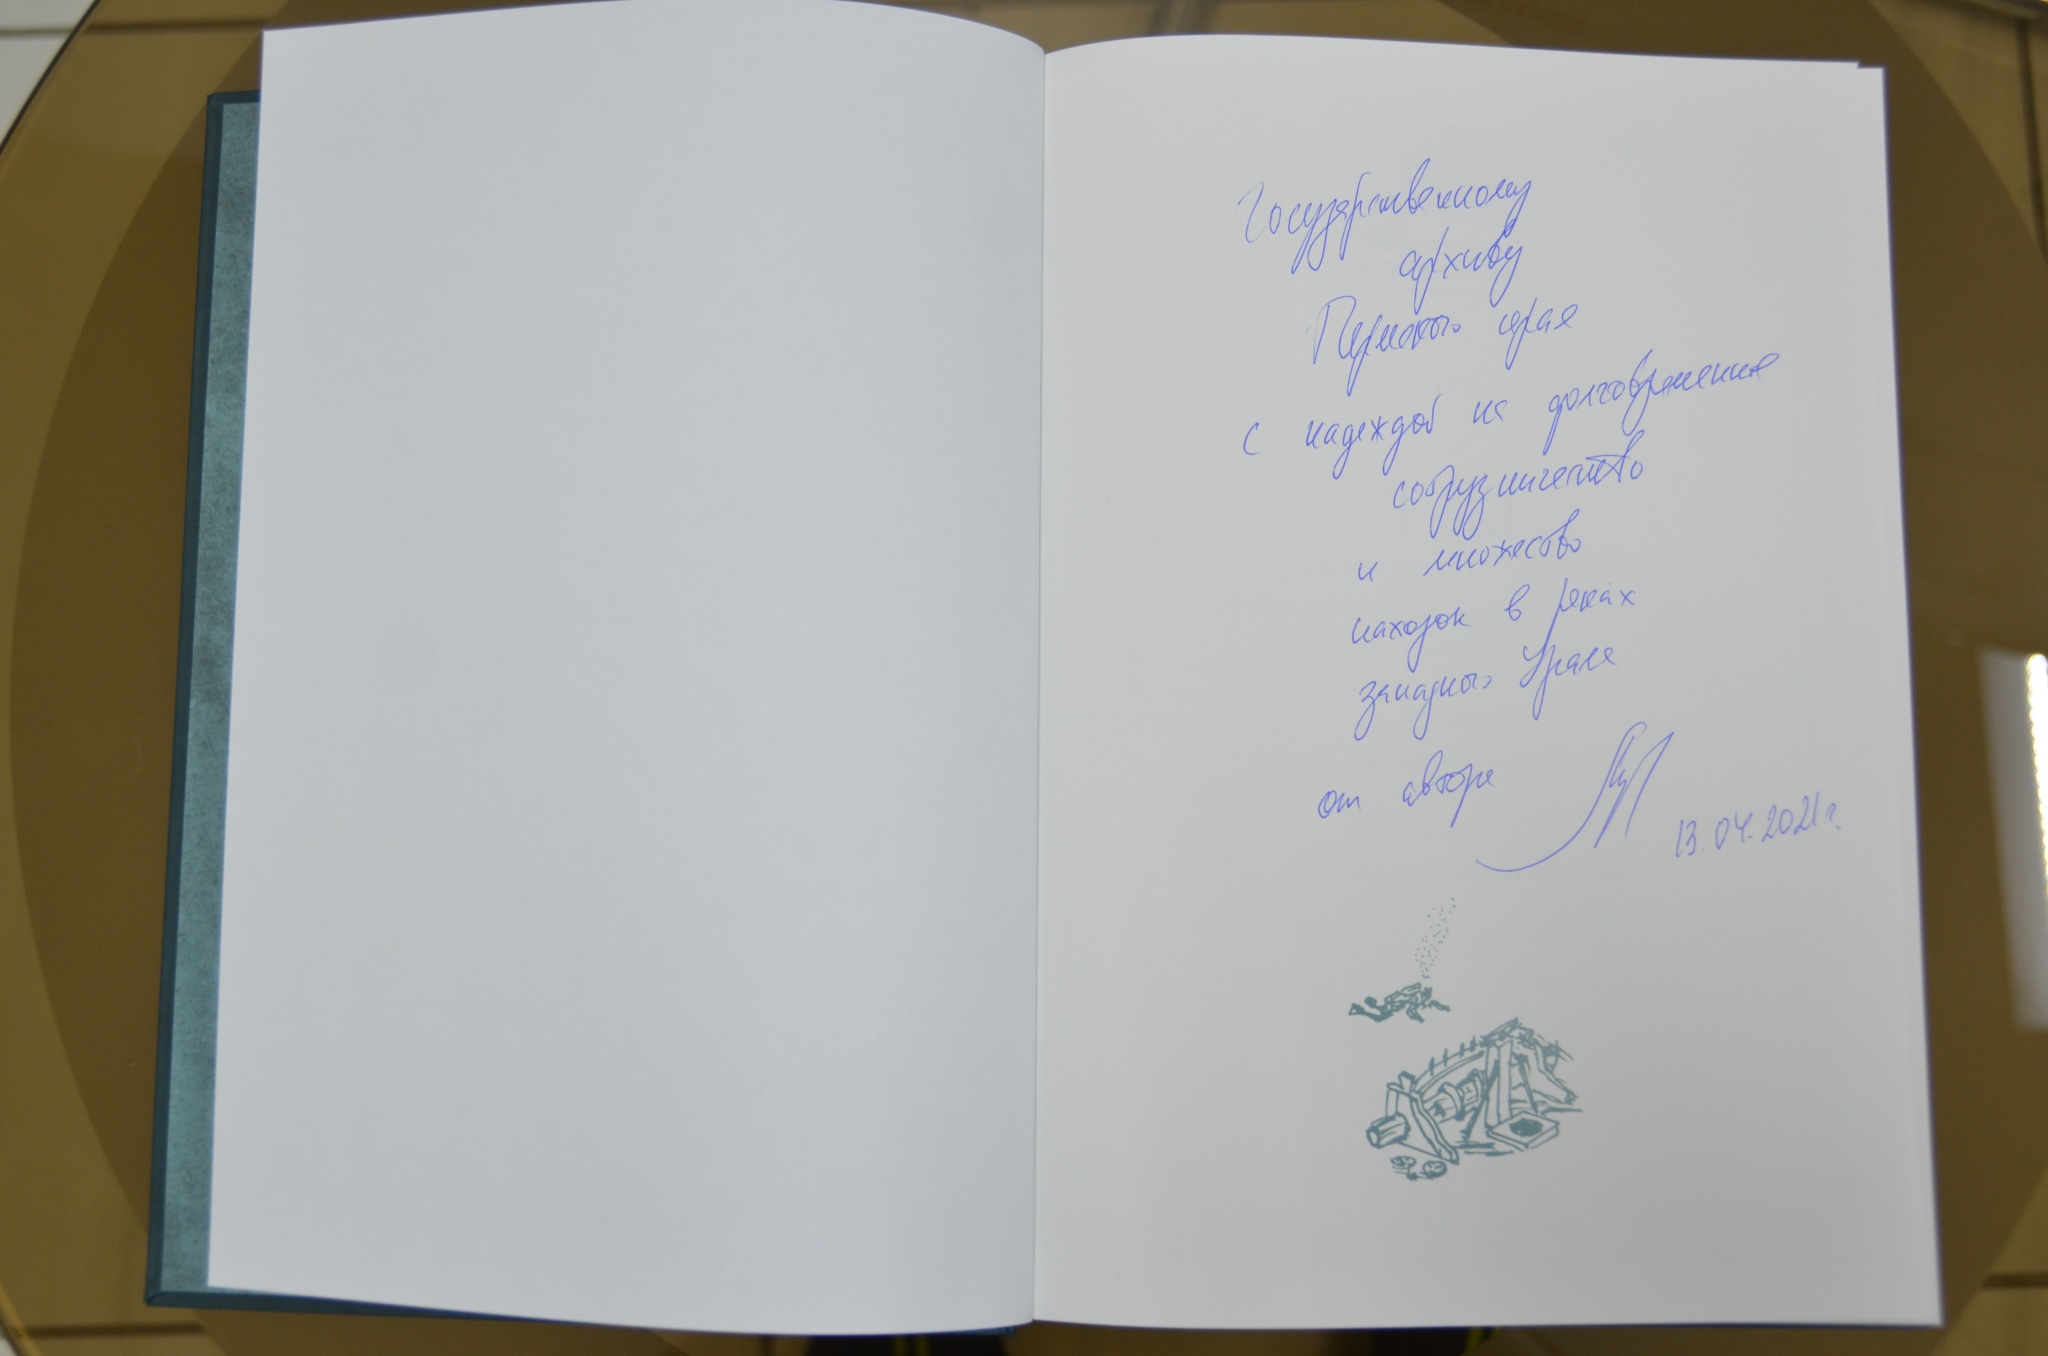 Государственному
архиву
Пермского края
с надеждой на долговременное
сотрудничество
и множество
находок в реках
западного Урала
от автора
13.04.2021г.